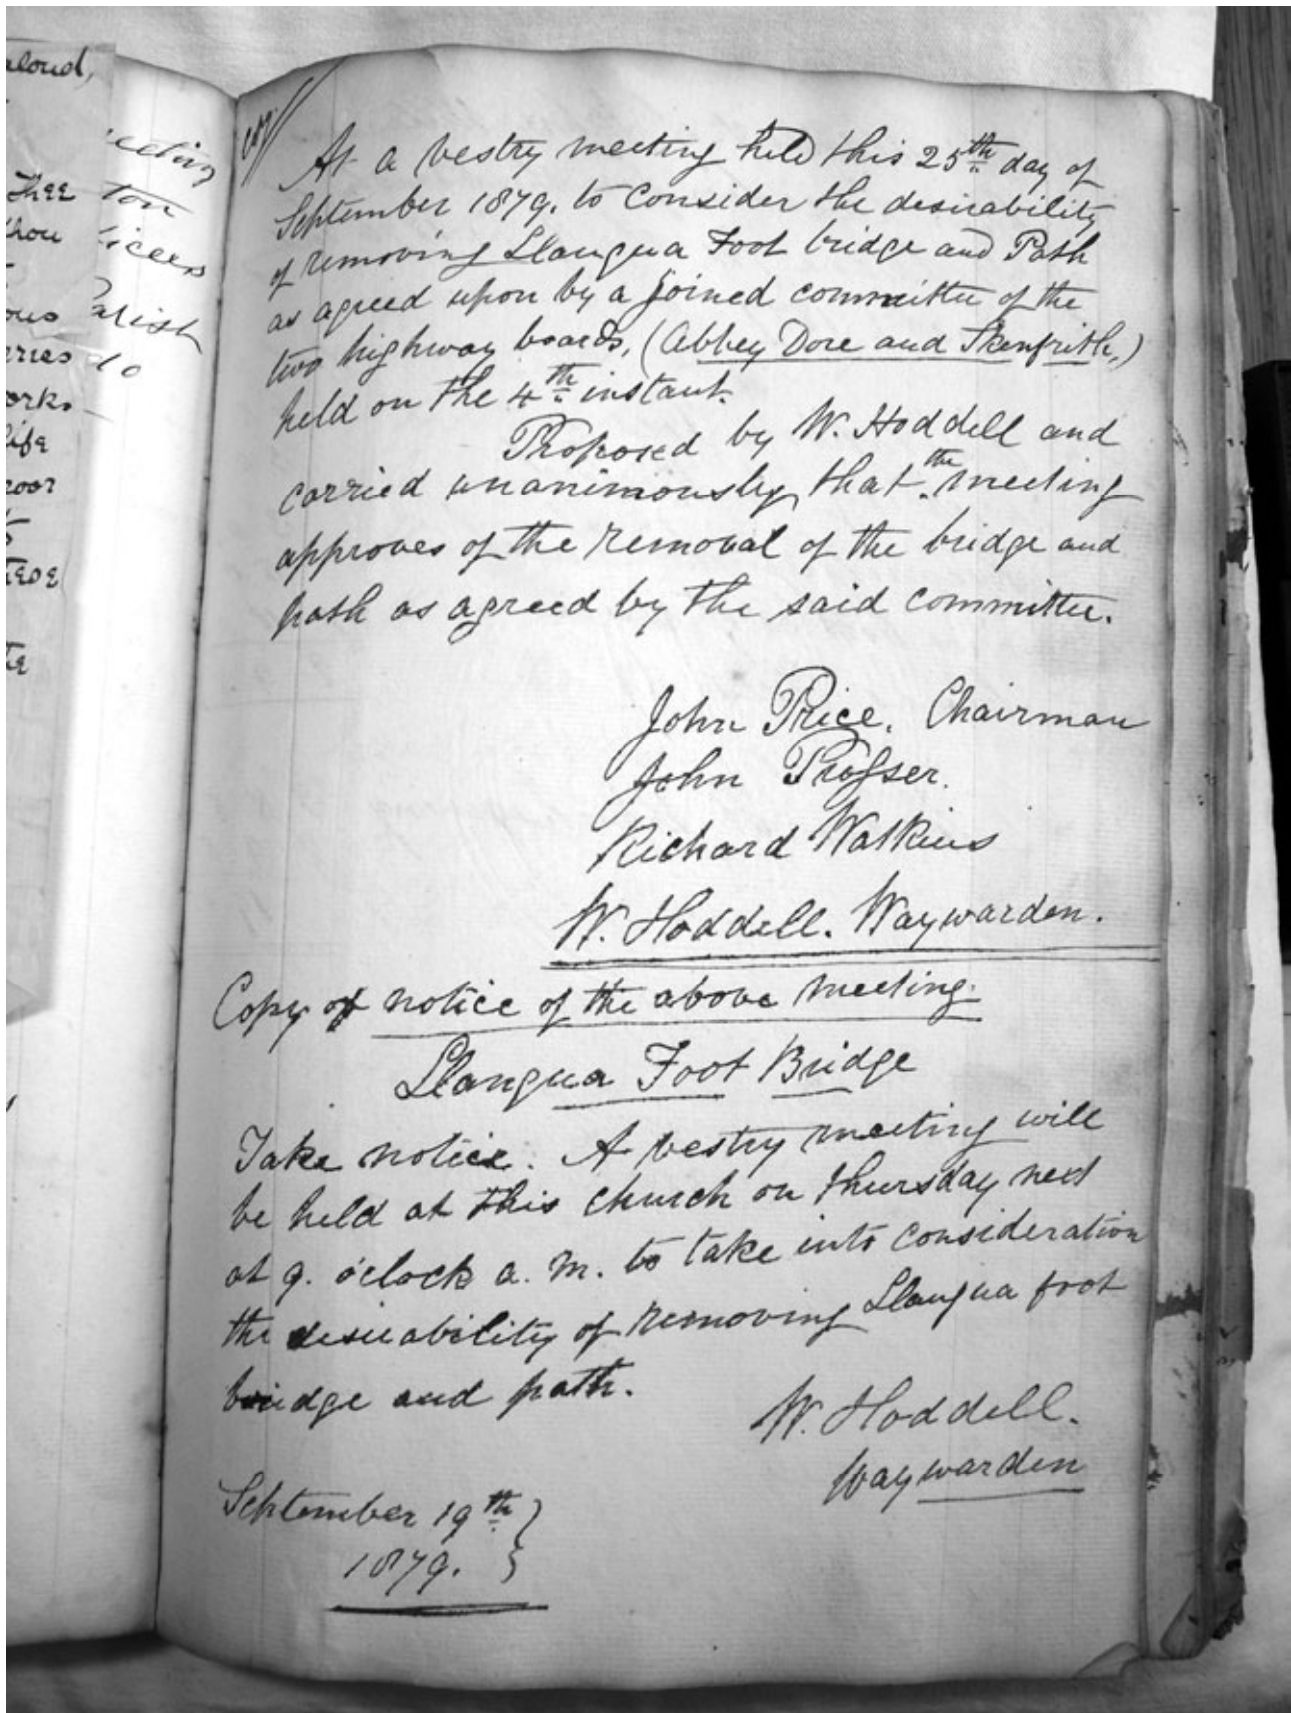 aloud,
thee
thou
ous
rries
orks
life
poor
these
the
eeting
ton
icers
arish
to
Copy
At a vestry meeting held this 25th day of
September 1879. to consider the desirability
of removing Llangua Foot bridge and Path
as agreed upon by a joined committee of the
two highway boards, (Abbey Dore and Skenfrith,)
held on the 4th instant.
Proposed by W. Hoddell and
carried unanimously that the meeting
approves of the removal of the bridge and
path as agreed by the said committee.
John Price. Chairman
John Prosser.
Richard Watkins
W. Hoddell. Waywarden.
Copy of notice of the above meeting.
Llangua Foot Bridge
Take notice. A vestry meeting will
be held at this church on thursday next
at 9. o'clock a. m. to take into consideration
the desirability of removing Llangua foot
bridge and path.
W. Hoddell.
Waywarden
September 19th }
1879. }